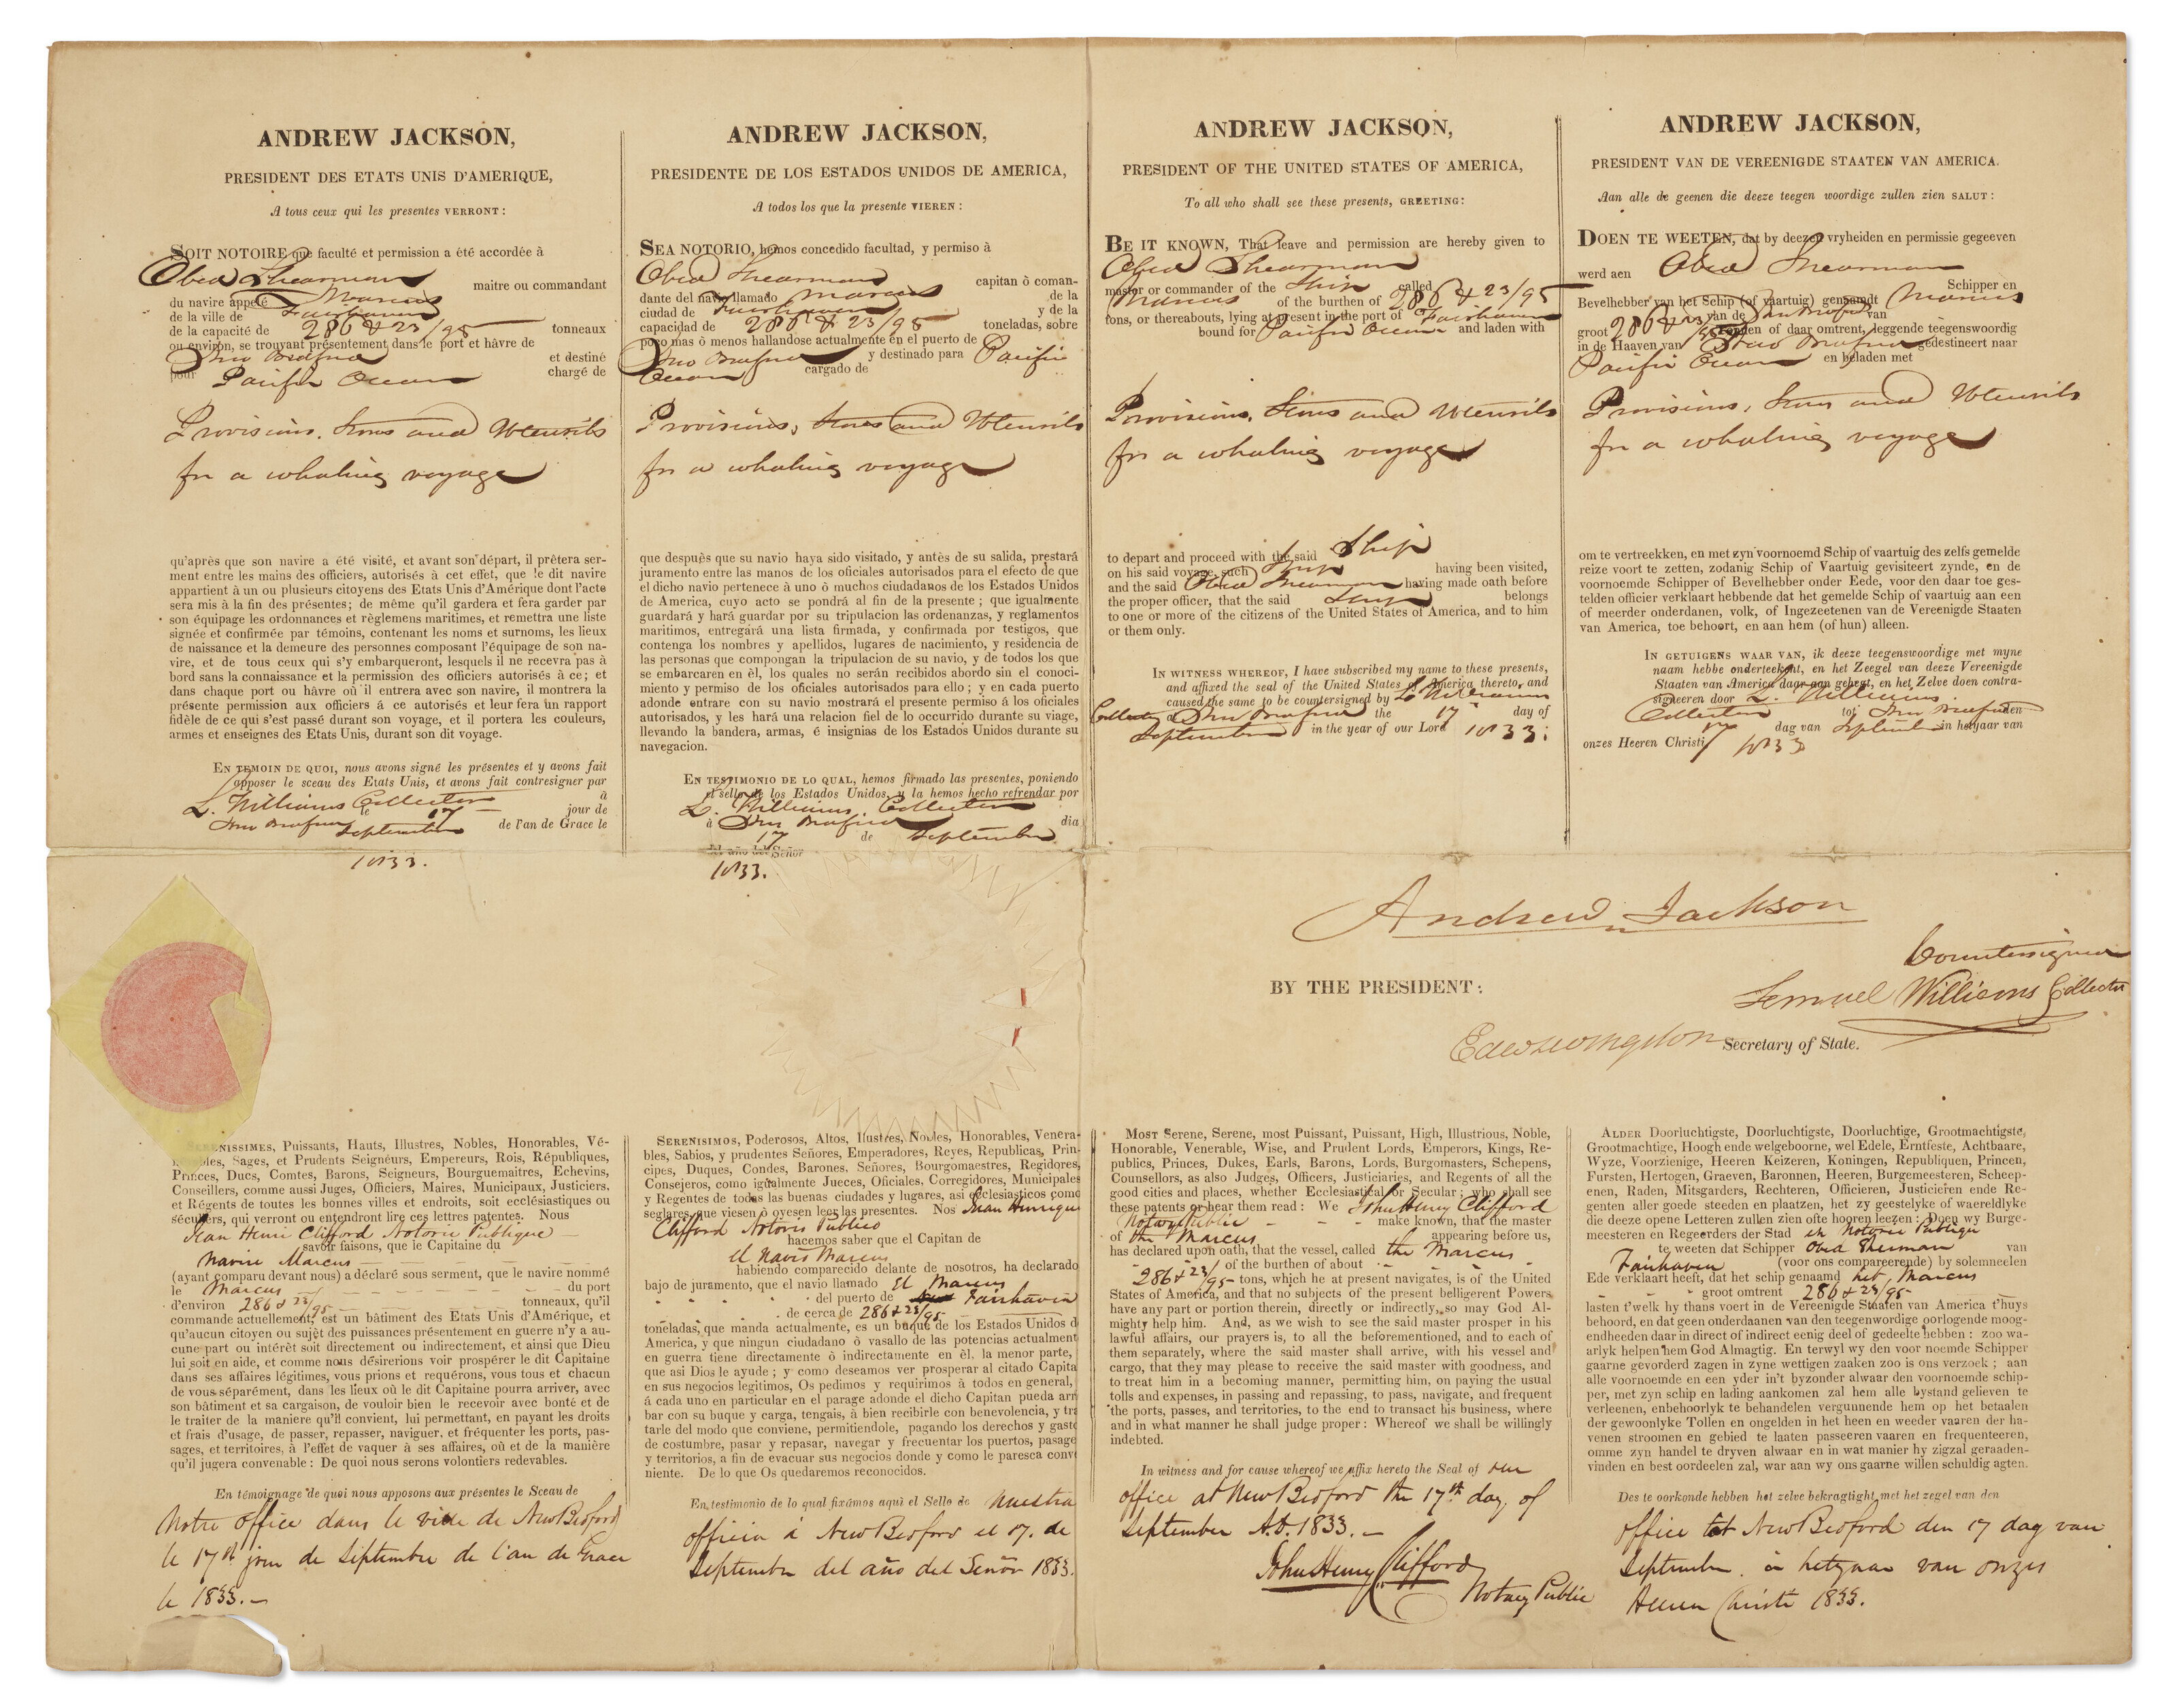 ANDREW JACKSON,
PRESIDENT DES ETATS UNIS D'AMERIQUE,
A tous ceux qui les presentes VERRONT:
SOIT NOTOIRE que faculté et permission a été accordée à
Obed Shearman maitre ou commandant
du navire appelé Marcus
de la ville de Fairhaven
de la capacité de 286 & 23/95 tonneaux
ou environ, se trouvant présentement dans le port et hâvre de
New Bedford et destiné
pour Pacific Ocean chargé de
Provisions, Stores and Utensils
for a whaling voyage
qu'après que son navire a été visité, et avant son départ, il prêtera ser-
ment entre les mains des officiers, autorisés à cet effet, que le dit navire
appartient à un ou plusieurs citoyens des Etats Unis d'Amérique dont l'acte
sera mis à la fin des présentes; de même qu'il gardera et fera garder par
son équipage les ordonnances et règlemens maritimes, et remettra une liste
signée et confirmée par témoins, contenant les noms et surnoms, les lieux
de naissance et la demeure des personnes composant l'équipage de son na-
vire, et de tous ceux qui s'y embarqueront, lesquels il ne recevra pas à
bord sans la connaissance et la permission des officiers autorisés à ce; et
dans chaque port ou hâvre où il entrera avec son navire, il montrera la
présente permission aux officiers á ce autorisés et leur fera un rapport
fidèle de ce qui s'est passé durant son voyage, et il portera les couleurs,
armes et enseignes des Etats Unis, durant son dit voyage.
EN TEMOIN DE QUOI, nous avons signé les présentes et y avons fait
apposer le sceau des Etats Unis, et avons fait contresigner par
L. Williams Collector à
New Bedford le 17 jour de
September de l'an de Grace le
1833.
ANDREW JACKSON,
PRESIDENTE DE LOS ESTADOS UNIDOS DE AMERICA,
A todos los que la presente VIEREN:
SEA NOTORIO, hemos concedido facultad, y permiso à
Obed Shearman capitan ò coman-
dante del navio llamado Marcus de la
ciudad de Fairhaven y de la
capacidad de 286 & 23/95 toneladas, sobre
poco mas ò menos hallandose actualmente en el puerto de
New Bedford y destinado para Pacific
Ocean cargado de
Provisions, Stores and Utensils
for a whaling voyage
que despuès que su navio haya sido visitado, y antès de su salida, prestará
juramento entre las manos de los oficiales autorisados para el efecto de que
el dicho navio pertenece à uno ò muchos ciudadanos de los Estados Unidos
de America, cuyo acto se pondrá al fin de la presente; que igualmente
guardará y hará guardar por su tripulacion las ordenanzas, y reglamentos
maritimos, entregará una lista firmada, y confirmada por testigos, que
contenga los nombres y apellidos, lugares de nacimiento, y residencia de
las personas que compongan la tripulacion de su navio, y de todos los que
se embarcaren en èl, los quales no serán recibidos abordo sin el conoci-
miento y permiso de los oficiales autorisados para ello; y en cada puerto
adonde entrare con su navio mostrará el presente permiso á los oficiales
autorisados, y les hará una relacion fiel de lo occurrido durante su viage,
llevando la bandera, armas, é insignias de los Estados Unidos durante su
navegacion.
EN TESTIMONIO DE LO QUAL, hemos firmado las presentes, poniendo
el sello de los Estados Unidos, y la hemos hecho refrendar por
L. Williams, Collector
à New Bedford dia
17 de September
del año del Señor
1833.
ANDREW JACKSON,
PRESIDENT OF THE UNITED STATES OF AMERICA,
To all who shall see these presents, GREETING:
BE IT KNOWN, That leave and permission are hereby given to
Obed Shearman
master or commander of the Ship called
Marcus of the burthen of 286 & 23/95
tons, or thereabouts, lying at present in the port of Fairhaven
bound for Pacific Ocean and laden with
Provisions, Stores and Utensils
for a whaling voyage
to depart and proceed with the said Ship
on his said voyage, such Ship having been visited,
and the said Obed Shearman having made oath before
the proper officer, that the said Ship belongs
to one or more of the citizens of the United States of America, and to him
or them only.
IN WITNESS WHEREOF, I have subscribed my name to these presents,
and affixed the seal of the United States of America thereto, and
caused the same to be countersigned by L. Williams
Collector at New Bedford the 17th day of
September in the year of our Lord 1833.
ANDREW JACKSON,
PRESIDENT VAN DE VEREENIGDE STAATEN VAN AMERICA.
Aan alle de geenen die deeze teegen woordige zullen zien SALUT:
DOEN TE WEETEN, dat by deezen vryheiden en permissie gegeeven
werd aen Obed Shearman
Schipper en
Bevelhebber van het Schip (of vaartuig) genaamdt Marcus
van de New Bedford van
groot 286 & 23/95 tonnen of daar omtrent, leggende teegenswoordig
in de Haaven van New Bedford gedestineert naar
Pacific Ocean en beladen met
Provisions, Stores and Utensils
for a whaling voyage
om te vertreekken, en met zyn voornoemd Schip of vaartuig des zelfs gemelde
reize voort te zetten, zodanig Schip of Vaartuig gevisiteert zynde, en de
voornoemde Schipper of Bevelhebber onder Eede, voor den daar toe ges-
telden officier verklaart hebbende dat het gemelde Schip of vaartuig aan een
of meerder onderdanen, volk, of Ingezeetenen van de Vereenigde Staaten
van America, toe behoort, en aan hem (of hun) alleen.
IN GETUIGENS WAAR VAN, ik deeze teegenswoordige met myne
naam hebbe onderteekent, en het Zeegel van deeze Vereenigde
Staaten van America daar aan gehegt, en het Zelve doen contra-
signeeren door L. Williams
Collector tot New Bedford den
17 dag van September in het yaar van
onzes Heeren Christi 1833
Andrew Jackson
Countersigned
BY THE PRESIDENT:
Lemuel Williams Collector
Edw Livingston Secretary of State.
SERENISSIMES, Puissants, Hauts, Illustres, Nobles, Honorables, Vé-
nérables, Sages, et Prudents Seigneurs, Empereurs, Rois, Républiques,
Princes, Ducs, Comtes, Barons, Seigneurs, Bourguemaitres, Echevins,
Conseillers, comme aussi Juges, Officiers, Maires, Municipaux, Justiciers,
et Régents de toutes les bonnes villes et endroits, soit ecclésiastiques ou
séculiers, qui verront ou entendront lire ces lettres patentes. Nous
Jean Henri Clifford Notorie Publique
savoir faisons, que le Capitaine du
Navire Marcus
(ayant comparu devant nous) a déclaré sous serment, que le navire nommé
le Marcus du port
d'environ 286 & 23/95 tonneaux, qu'il
commande actuellement, est un bâtiment des Etats Unis d'Amérique, et
qu'aucun citoyen ou sujet des puissances présentement en guerre n'y a au-
cune part ou intérêt soit directement ou indirectement, et ainsi que Dieu
lui soit en aide, et comme nous désirerions voir prospérer le dit Capitaine
dans ses affaires légitimes, vous prions et requérons, vous tous et chacun
de vous séparément, dans les lieux où le dit Capitaine pourra arriver, avec
son bâtiment et sa cargaison, de vouloir bien le recevoir avec bonté et de
le traiter de la maniere qu'il convient, lui permettant, en payant les droits
et frais d'usage, de passer, repasser, naviguer, et fréquenter les ports, pas-
sages, et territoires, à l'effet de vaquer à ses affaires, où et de la manière
qu'il jugera convenable: De quoi nous serons volontiers redevables.
En témoignage de quoi nous apposons aux présentes le Sceau de
Notre office dans le ville de New Bedford
le 17th jour de Septembre de l'an de Grace
le 1833.
SERENISIMOS, Poderosos, Altos, Ilustres, Nobles, Honorables, Venera-
bles, Sabios, y prudentes Señores, Emperadores, Reyes, Republicas, Prin-
cipes, Duques, Condes, Barones, Señores, Bourgomaestres, Regidores,
Consejeros, como igualmente Jueces, Oficiales, Corregidores, Municipales
y Regentes de todas las buenas ciudades y lugares, asi ecclesiasticos como
seglares, que viesen ò oyesen leer las presentes. Nos Juan Henrique
Clifford Notorio Publico
hacemos saber que el Capitan de
el Navio Marcus
habiendo comparecido delante de nosotros, ha declarado
bajo de juramento, que el navio llamado El Marcus
del puerto de Fairhaven
de cerca de 286 & 23/95
toneladas, que manda actualmente, es un buque de los Estados Unidos d
America, y que ningun ciudadano ò vasallo de las potencias actualment
en guerra tiene directamente ò indirectamente en èl, la menor parte,
que asi Dios le ayude; y como deseamos ver prosperar al citado Capita
en sus negocios legitimos, Os pedimos y requirimos à todos en general,
á cada uno en particular en el parage adonde el dicho Capitan pueda arri
bar con su buque y carga, tengais, à bien recibirle con benevolencia, y tra
tarle del modo que conviene, permitiendole, pagando los derechos y gasto
de costumbre, pasar y repasar, navegar y frecuentar los puertos, pasage
y territorios, a fin de evacuar sus negocios donde y como le paresca conve
niente. De lo que Os quedaremos reconocidos.
En testimonio de lo qual fixámos aqui el Sello de Nuestra
officia à New Bedford el 17. de
Septembre del año del Senõr 1833.
MOST Serene, Serene, most Puissant, Puissant, High, Illustrious, Noble,
Honorable, Venerable, Wise, and Prudent Lords, Emperors, Kings, Re-
publics, Princes, Dukes, Earls, Barons, Lords, Burgomasters, Schepens,
Counsellors, as also Judges, Officers, Justiciaries, and Regents of all the
good cities and places, whether Ecclesiastical or Secular; who shall see
these patents or hear them read: We John Henry Clifford
Notary Public make known, that the master
of the Marcus appearing before us,
has declared upon oath, that the vessel, called the Marcus
of the burthen of about
286 & 23/95 tons, which he at present navigates, is of the United
States of America, and that no subjects of the present belligerent Powers
have any part or portion therein, directly or indirectly, so may God Al-
mighty help him. And, as we wish to see the said master prosper in his
lawful affairs, our prayers is, to all the beforementioned, and to each of
them separately, where the said master shall arrive, with his vessel and
cargo, that they may please to receive the said master with goodness, and
to treat him in a becoming manner, permitting him, on paying the usual
tolls and expenses, in passing and repassing, to pass, navigate, and frequent
the ports, passes, and territories, to the end to transact his business, where
and in what manner he shall judge proper: Whereof we shall be willingly
indebted.
In witness and for cause whereof we affix hereto the Seal of our
office at New Bedford the 17th day of
September A.D. 1833.
John Henry Clifford
Notary Public
ALDER Doorluchtigste, Doorluchtigste, Doorluchtige, Grootmachtigste,
Grootmachtige, Hoogh ende welgeboorne, wel Edele, Erntfeste, Achtbaare,
Wyze, Voorzienige, Heeren Keizeren, Koningen, Republiquen, Princen,
Fursten, Hertogen, Graeven, Baronnen, Heeren, Burgemeesteren, Scheep-
enen, Raden, Mitsgarders, Rechteren, Officieren, Justicieren ende Re-
genten aller goede steeden en plaatzen, het zy geestelyke of waereldlyke
die deeze opene Letteren zullen zien ofte hooren leezen: Doen wy Burge-
meesteren en Regeerders der Stad en Notorie Publique
te weeten dat Schipper Obed Sherman van
Fairhaven (voor ons compareerende) by solemneelen
Ede verklaart heeft, dat het schip genaamd het Marcus
groot omtrent 286 & 23/95
lasten t'welk hy thans voert in de Vereenigde Staaten van America t'huys
behoord, en dat geen onderdaanen van den teegenwordige oorlogende moog-
endheeden daar in direct of indirect eenig deel of gedeelte hebben: zoo wa-
arlyk helpen hem God Almagtig. En terwyl wy den voor noemde Schipper
gaarne gevorderd zagen in zyne wettigen zaaken zoo is ons verzoek; aan
alle voornoemde en een yder in't byzonder alwaar den voornoemde schip-
per, met zyn schip en lading aankomen zal hem alle bystand gelieven te
verleenen, enbehoorlyk te behandelen vergunnende hem op het betaalen
der gewoonlyke Tollen en ongelden in het heen en weeder vaaren der ha-
venen stroomen en gebied te laaten passeeren vaaren en frequenteeren,
omme zyn handel te dryven alwaar en in wat manier hy zigzal geraaden-
vinden en best oordeelen zal, war aan wy ons gaarne willen schuldig agten.
Des te oorkonde hebben het zelve bekragtight met het zegel van den
office tot New Bedford den 17 dag van
September in hetyaar van onzes
Heeren Christi 1833.